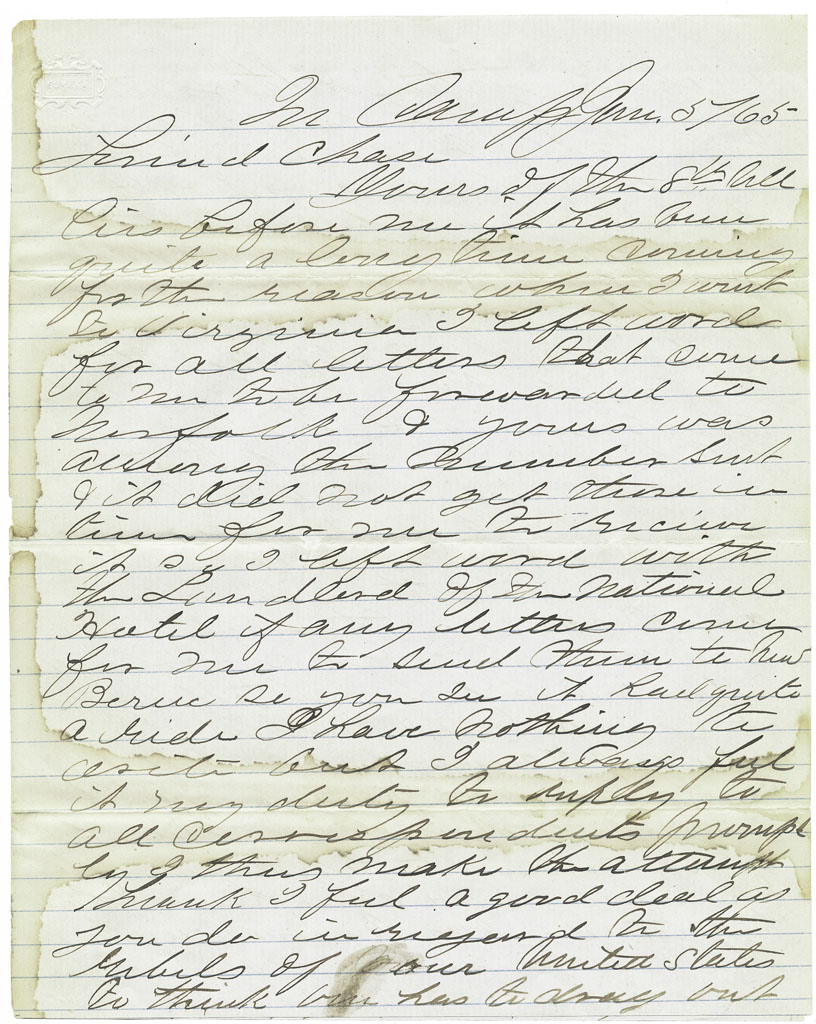 In Camp Jan. 5/65
Friend Chase
Yours of the 8th
lies before me it has been
quite a long time coming
for the reason when I went
to Virginia I left word
for all letters that come
to me to be forwarded to
Norfolk & yours was
among the number sent
& it did not get there in
time for me to recieve
it so I left word with
the Landlord of the National
Hotel if any letters come
for me to send them to New
Berne so you see it had quite
a ride I have nothing to
write but I always feel
it my duty to reply to
all correspondents prompt
ly I thus make the attempt
Frank I feel a good deal as
you do in regard to the
Rebels of our United States
to think one has to drag out